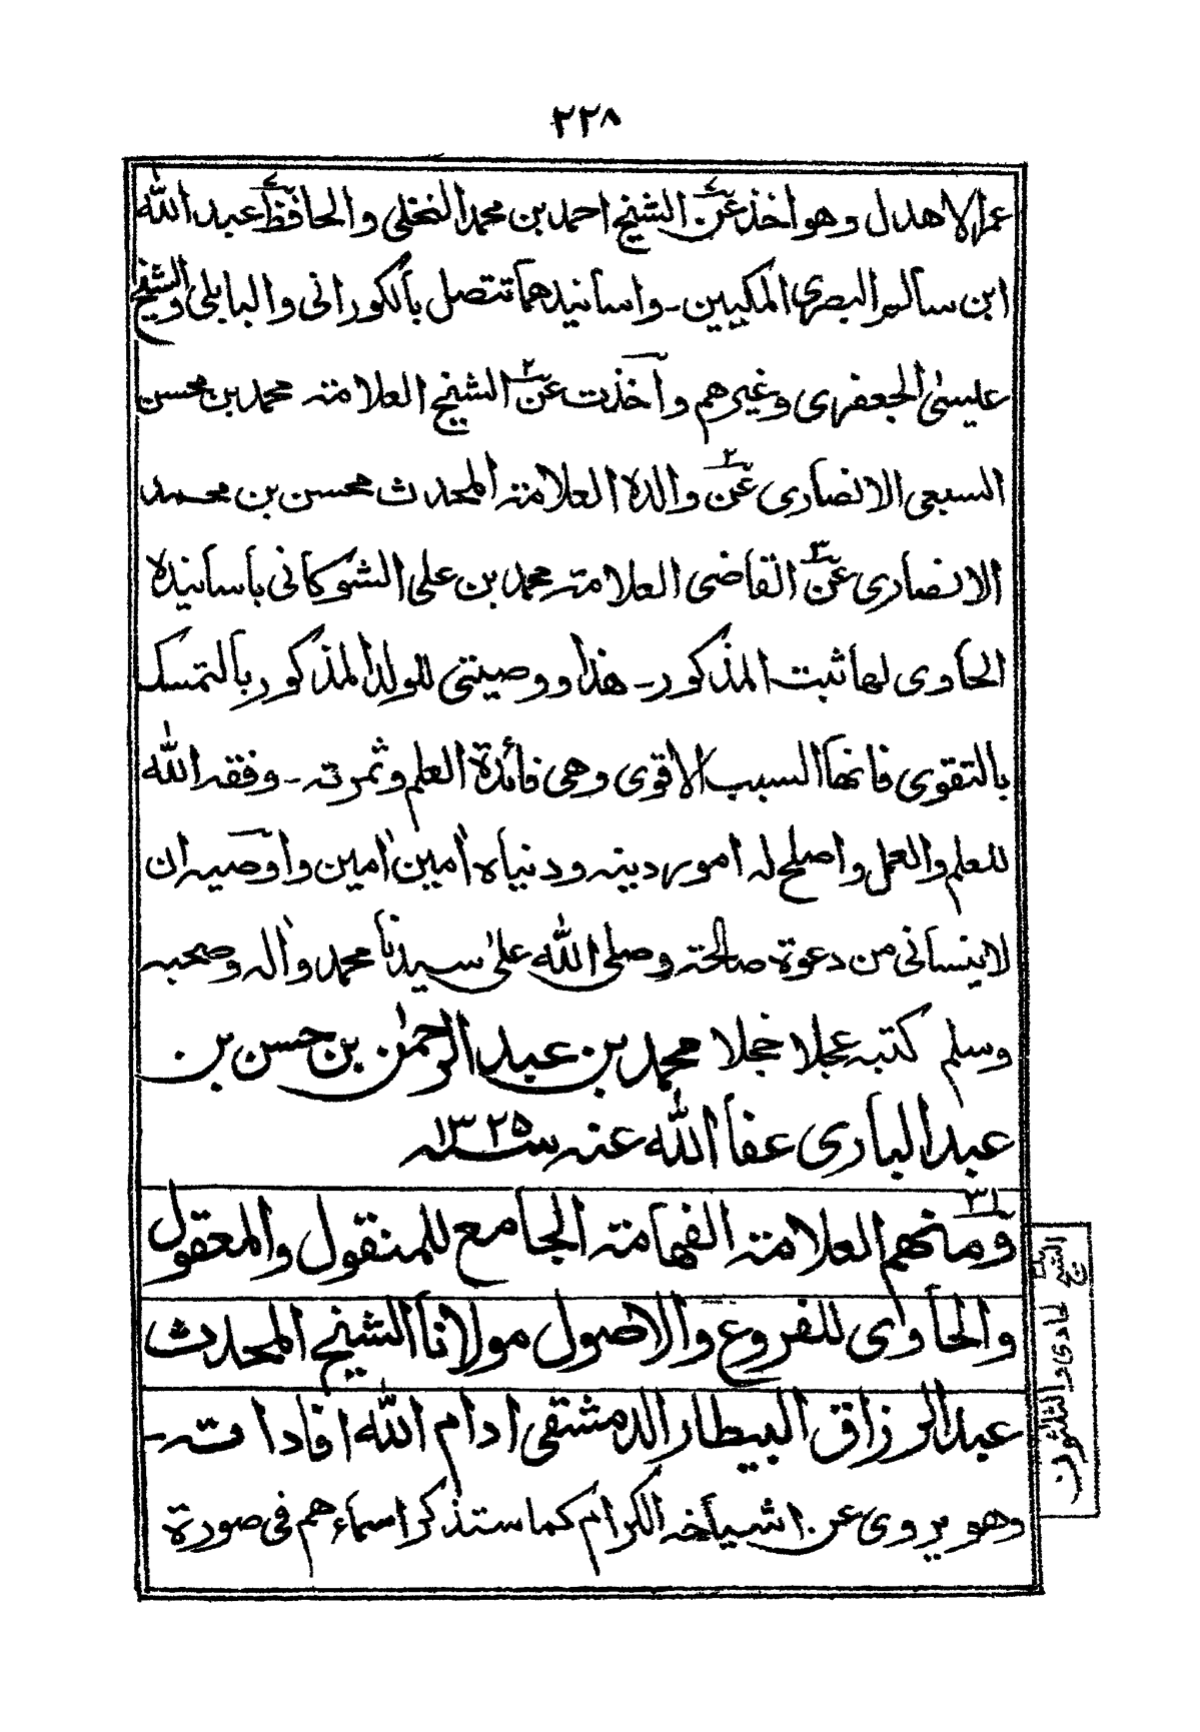 ٢٢٨
عمر الاهدل وهو اخذ عن الشيخ احمد بن محمد النخلي والحافظ عبد الله
ابن سالم البصري المكيين ـ واسانيدهما تتصل بالكوراني والبابلي والشيخ
عيسى الجعفري وغيرهم وآخذت عن الشيخ العلامته محمد بن محسن
السبعي الانصاري عن والده العلامته المحدث محسن بن محمد
الانصاري عن القاضي العلامته محمد بن علي الشوكاني باسانيده
الحاوي لها ثبت المذكور ـ هذا ووصيتي للولد المذكور بالتمسك
بالتقوى فانها السبب الاقوى وهي فائدة العلم وثمرته ـ وفقه الله
للعلم والعمل واصلح له امور دينه ودنياه اٰمين اٰمين واوصيه ان
لا ينساني من دعوة صالحته وصلى الله على سيدنا محمد واٰله وصحبه
وسلم كتبه عجلا خجلا محمد بن عبد الرحمٰن بن حسن بن
عبد الباري عفا الله عنه سنه ١٣٢٥
٣١
ومنهم العلامته الفهامته الجامع للمنقول والمعقول
والحاوي للفروع والاصول مولانا الشيخ المحدث
عبد الرزاق البيطار الدمشقي ادام الله افاداته ـ
وهو يروي عن اشياخه الكرام كما ستذكر اسماءهم في صورة
الشيخ الحادي والثلاثون